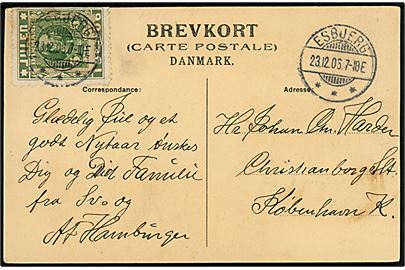 BREVKORT
(CARTE POSTALE)
DANMARK.
JULEN
ESBJERG
23.12.06.7-18E
Correspondance:
Adresse:
Glædelig Jul og et
godt Nytaar ønskes
Dig og Din Familie
fra Sv. og
A F Hamburger
Hr. Johan Chr. Harder
Christiansborg Slt.
København K.